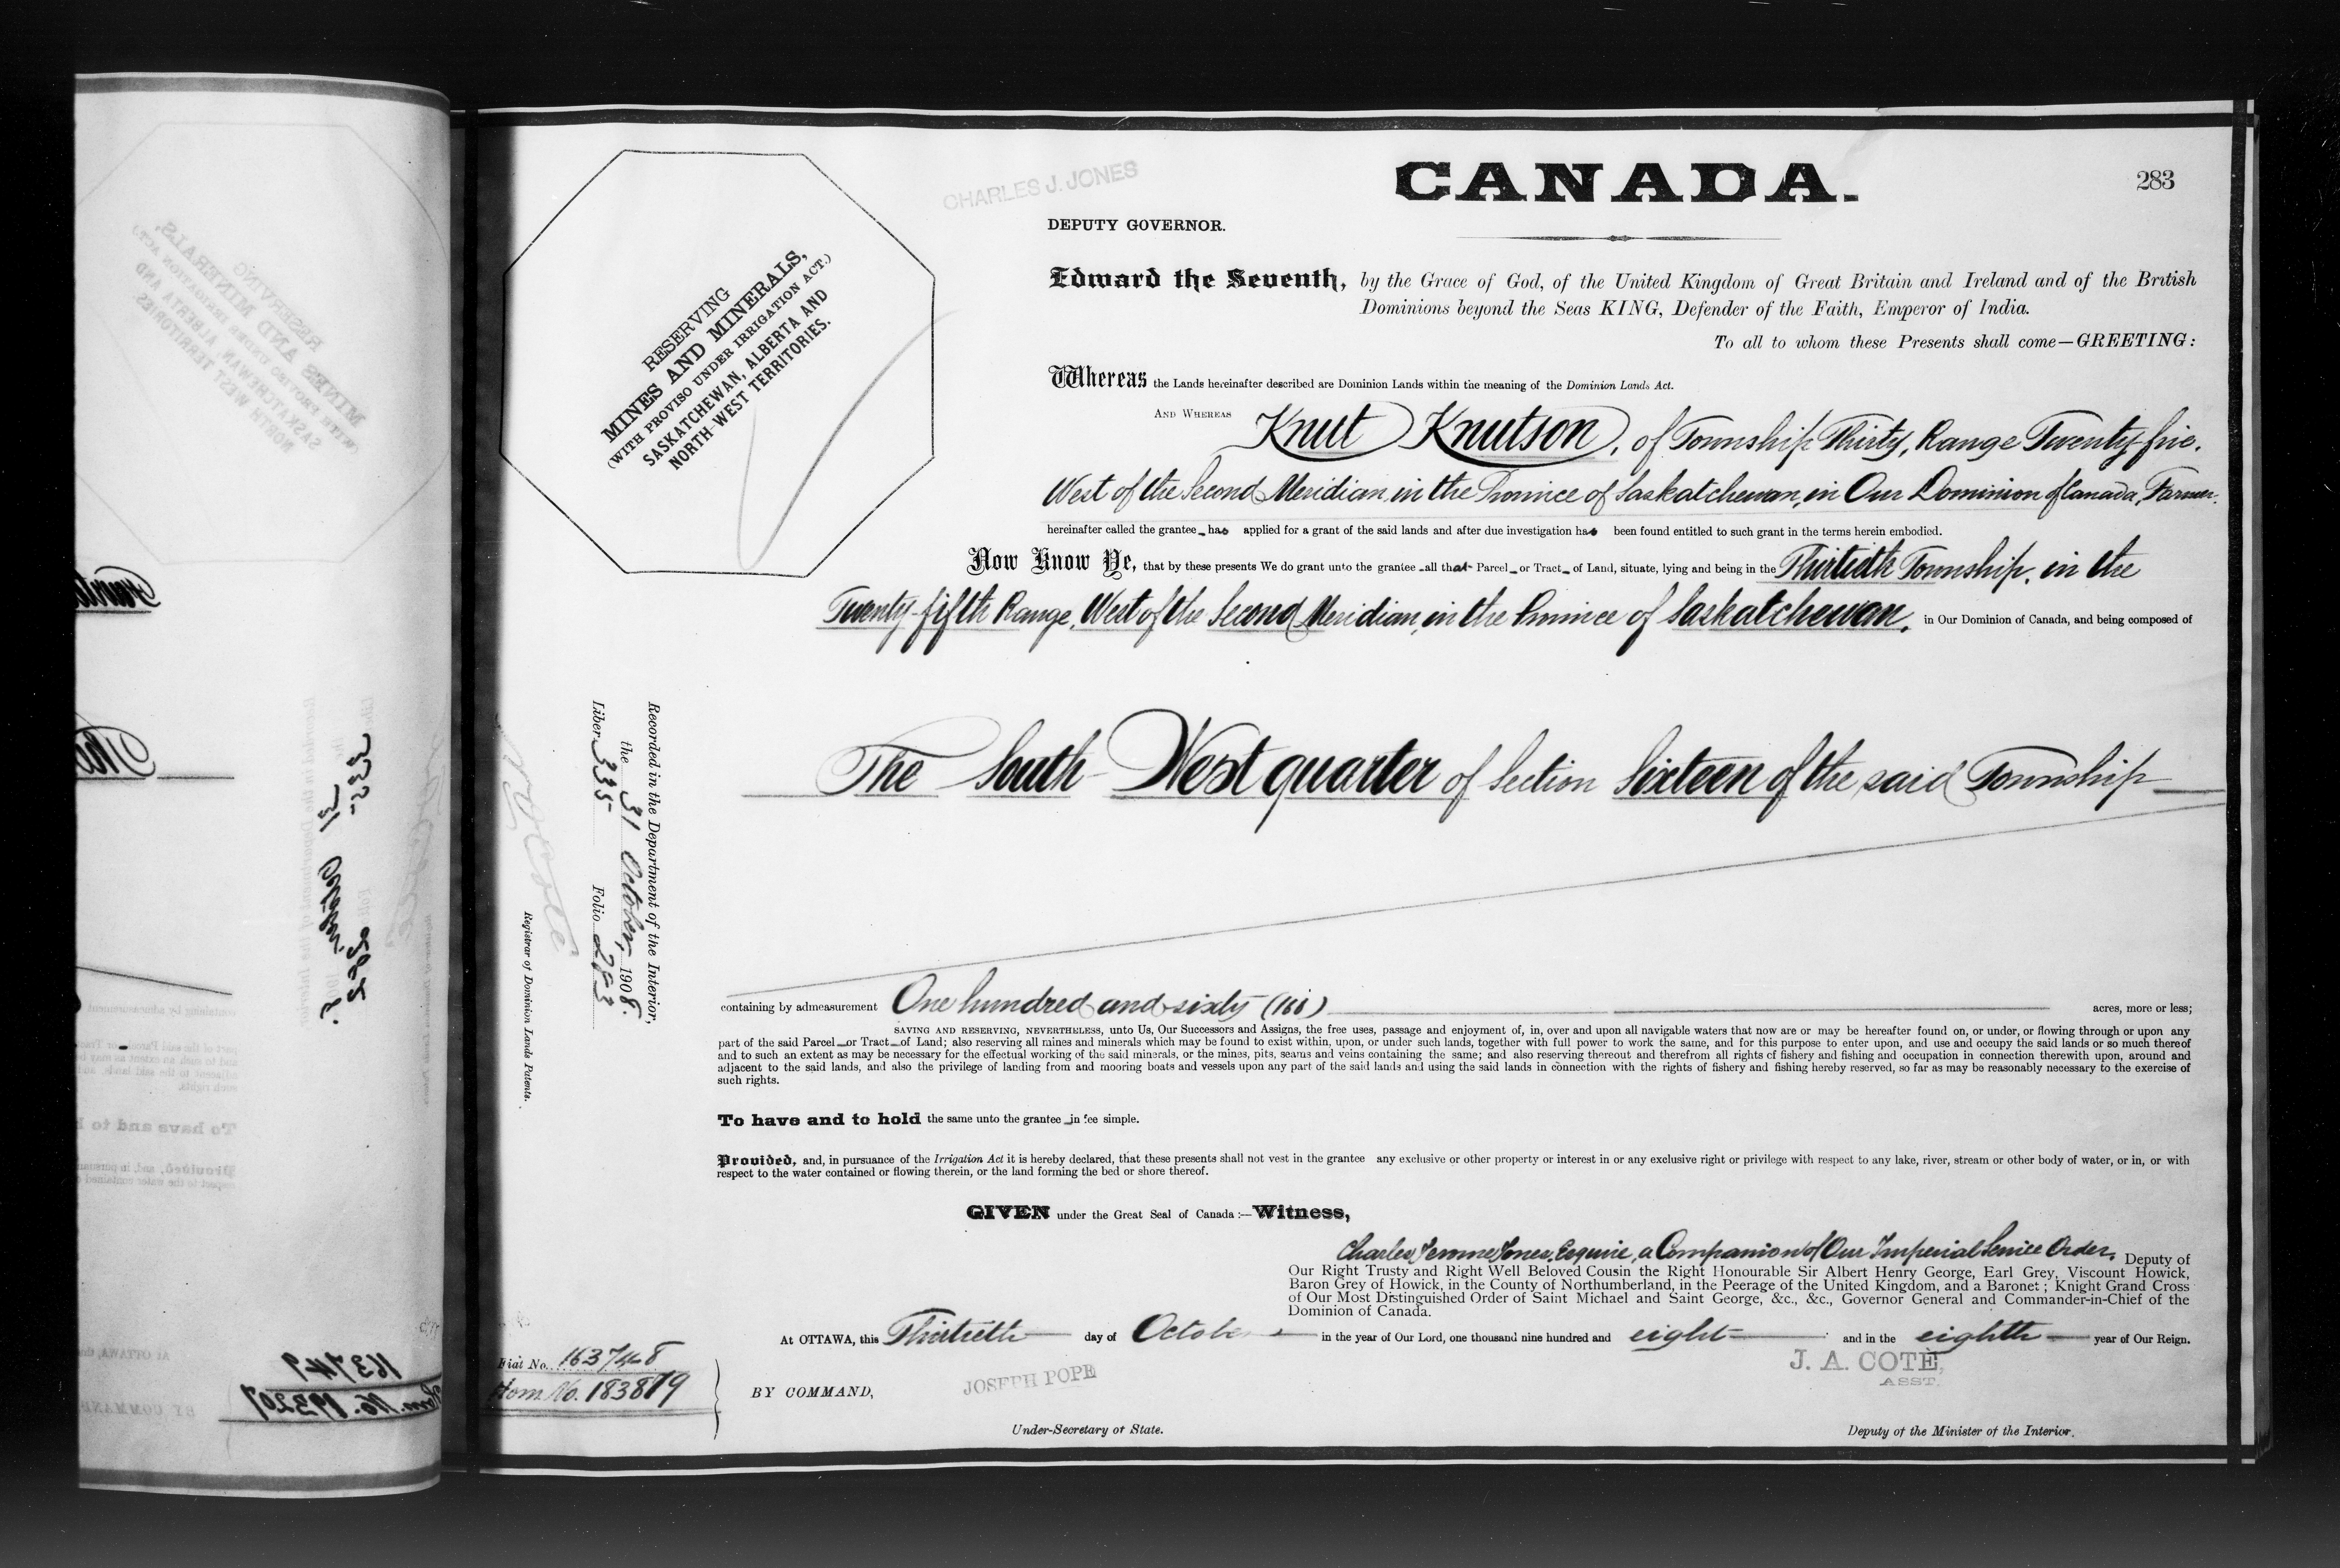 CANADA.
283
CHARLES J. JONES
DEPUTY GOVERNOR.
RESERVING
MINES AND MINERALS,
(WITH PROVISO UNDER IRRIGATION ACT.)
SASKATCHEWAN, ALBERTA AND
NORTH-WEST TERRITORIES.
Edward the Seventh, by the Grace of God, of the United Kingdom of Great Britain and Ireland and of the British
Dominions beyond the Seas KING, Defender of the Faith, Emperor of India.
To all to whom these Presents shall come—GREETING:
Whereas the Lands hereinafter described are Dominion Lands within the meaning of the Dominion Lands Act.
AND WHEREAS Knut Knutson, of Township Thirty, Range Twenty-five,
West of the Second Meridian, in the Province of Saskatchewan, in Our Dominion of Canada, Farmer.
hereinafter called the grantee has applied for a grant of the said lands and after due investigation has been found entitled to such grant in the terms herein embodied.
Now Know Ye, that by these presents We do grant unto the grantee all that Parcel or Tract of Land, situate, lying and being in the Thirtieth Township, in the
Twenty-fifth Range, West of the Second Meridian, in the Province of Saskatchewan, in Our Dominion of Canada, and being composed of
The South West quarter of Section Sixteen of the said Township
containing by admeasurement One hundred and sixty (160) acres, more or less;
SAVING AND RESERVING, NEVERTHELESS, unto Us, Our Successors and Assigns, the free uses, passage and enjoyment of, in, over and upon all navigable waters that now are or may be hereafter found on, or under, or flowing through or upon any
part of the said Parcel or Tract of Land; also reserving all mines and minerals which may be found to exist within, upon, or under such lands, together with full power to work the same, and for this purpose to enter upon, and use and occupy the said lands or so much thereof
and to such an extent as may be necessary for the effectual working of the said minerals, or the mines, pits, seams and veins containing the same; and also reserving thereout and therefrom all rights of fishery and fishing and occupation in connection therewith upon, around and
adjacent to the said lands, and also the privilege of landing from and mooring boats and vessels upon any part of the said lands and using the said lands in connection with the rights of fishery and fishing hereby reserved, so far as may be reasonably necessary to the exercise of
such rights.
To have and to hold the same unto the grantee in fee simple.
Provided, and, in pursuance of the Irrigation Act it is hereby declared, that these presents shall not vest in the grantee any exclusive or other property or interest in or any exclusive right or privilege with respect to any lake, river, stream or other body of water, or in, or with
respect to the water contained or flowing therein, or the land forming the bed or shore thereof.
GIVEN under the Great Seal of Canada:—Witness,
Charles Jerome Jones, Esquire, a Companion of Our Imperial Service Order, Deputy of
Our Right Trusty and Right Well Beloved Cousin the Right Honourable Sir Albert Henry George, Earl Grey, Viscount Howick,
Baron Grey of Howick, in the County of Northumberland, in the Peerage of the United Kingdom, and a Baronet; Knight Grand Cross
of Our Most Distinguished Order of Saint Michael and Saint George, &c., &c., Governor General and Commander-in-Chief of the
Dominion of Canada.
At OTTAWA, this Thirtieth day of October in the year of Our Lord, one thousand nine hundred and eight and in the eighth year of Our Reign.
BY COMMAND,
JOSEPH POPE
Under-Secretary of State.
J. A. COTÉ,
ASST.
Deputy of the Minister of the Interior.
Recorded in the Department of the Interior,
the 31 October, 1908.
Liber 335 Folio 283
Registrar of Dominion Lands Patents.
Fiat No. 163748
Hom. No. 183819